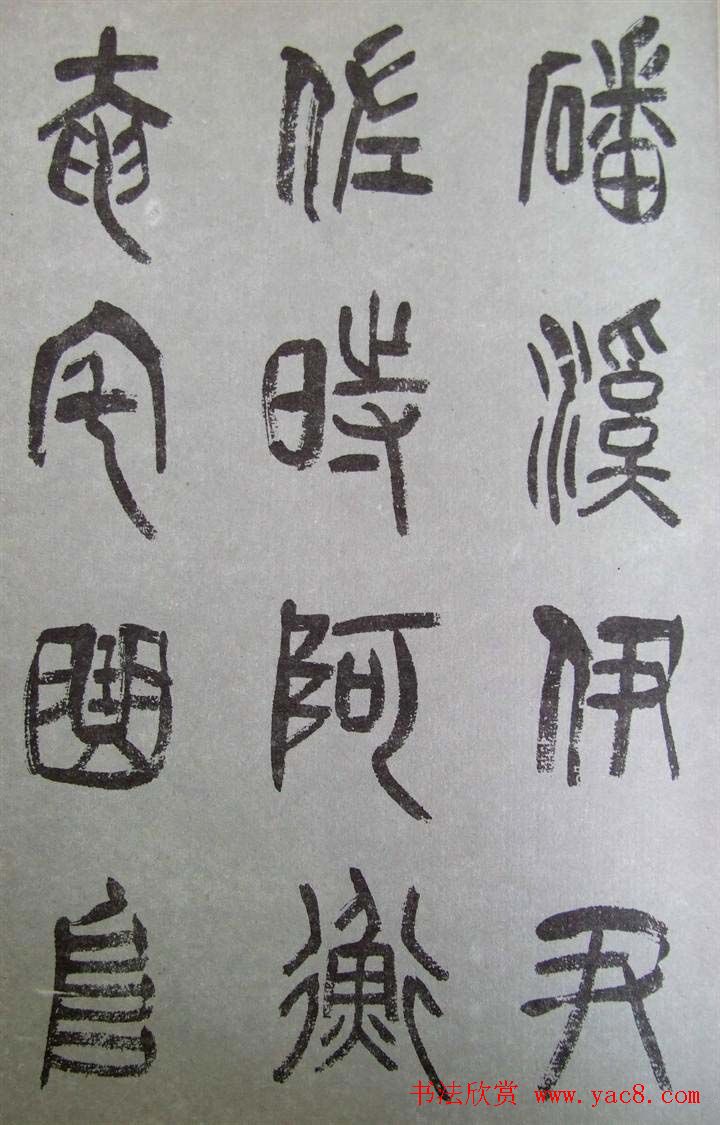 磻溪伊尹
佐時阿衡
奄宅曲阜
书法欣赏 www.yac8.com